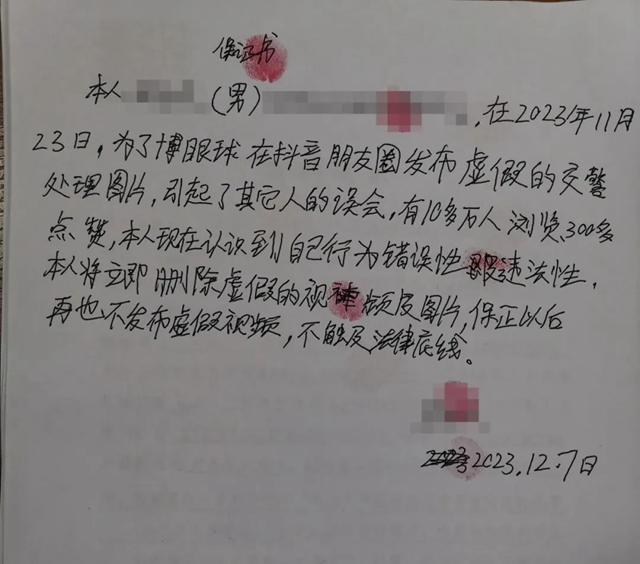 保证书
本人 (男) ,在2023年11月
23日,为了博眼球在抖音朋友圈发布虚假的交警
处理图片,引起了其它人的误会,有10多万人浏览、300多
点赞,本人现在认识到自己行为错误性 违法性,
本人将立即删除虚假的视频及图片,保正以后
再也不发布虚假视频,不触及法律底线。
2023.12.7日